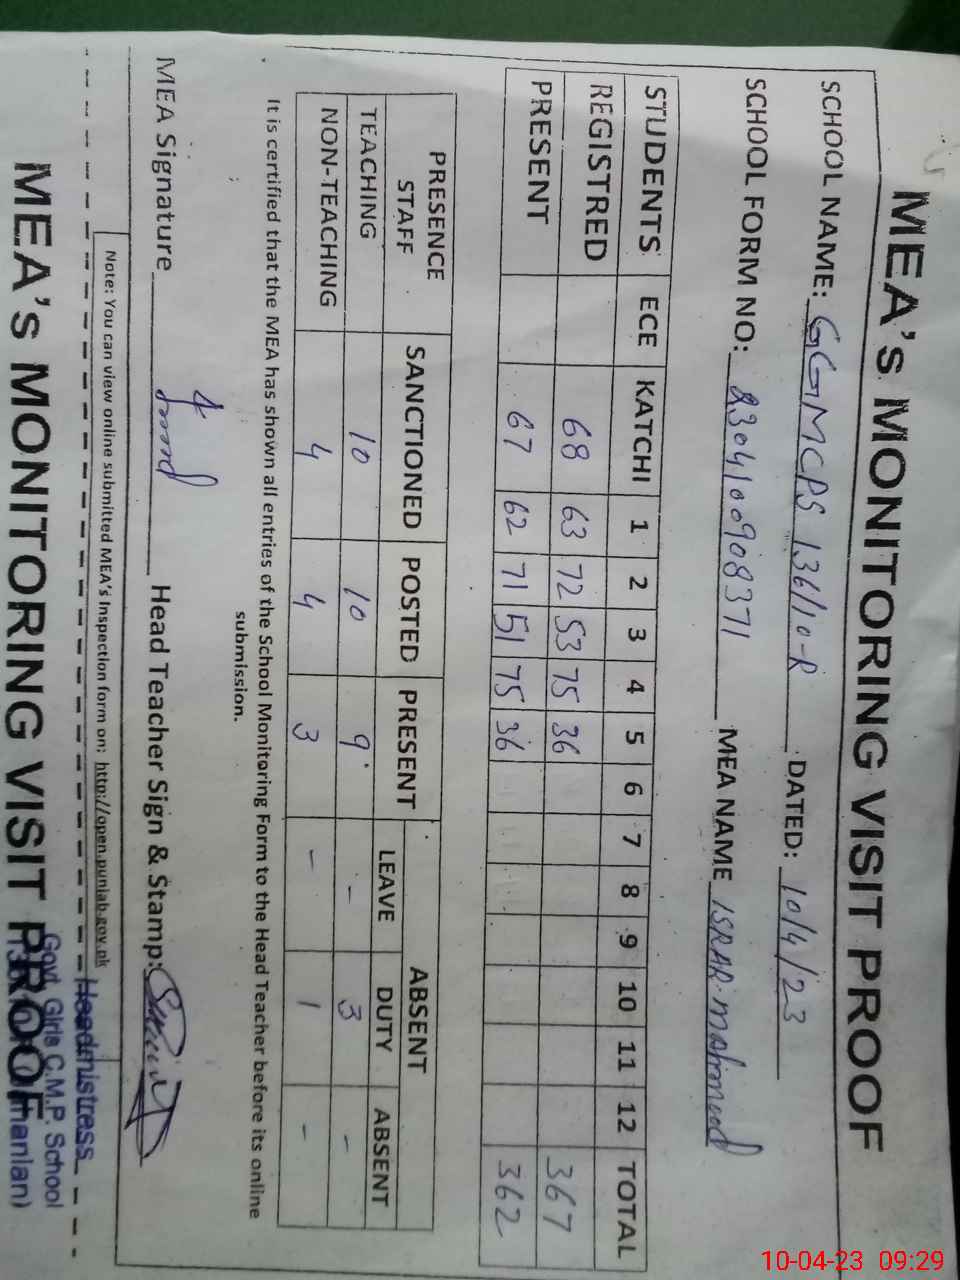 MEA's MONITORING VISIT PROOF
SCHOOL NAME: GGMCPS 136/10-R DATED: 10/4/23
SCHOOL FORM NO: 2304100908371 MEA NAME ISRAR mahmud
STUDENTS ECE KATCHI 1 2 3 4 5 6 7 8 9 10 11 12 TOTAL
REGISTRED 68 63 72 53 75 36 367
PRESENT 67 62 71 51 75 36 362
PRESENCE STAFF SANCTIONED POSTED PRESENT ABSENT
LEAVE DUTY ABSENT
TEACHING 10 10 9 - 3 -
NON-TEACHING 4 4 3 - 1 -
It is certified that the MEA has shown all entries of the School Monitoring Form to the Head Teacher before its online
submission.
MEA Signature Head Teacher Sign & Stamp:
Note: You can view online submitted MEA's Inspection form on: http://open.punjab.gov.pk
Headmistress
Govt. Girls C.M.P. School
MEA's MONITORING VISIT PROOF
10-04-23 09:29